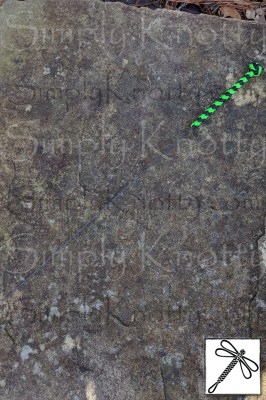 Simply Knotty
SimplyKnotty.com
Simply Knotty
SimplyKnotty.com
Simply Knotty
SimplyKnotty.com
Simply Knotty